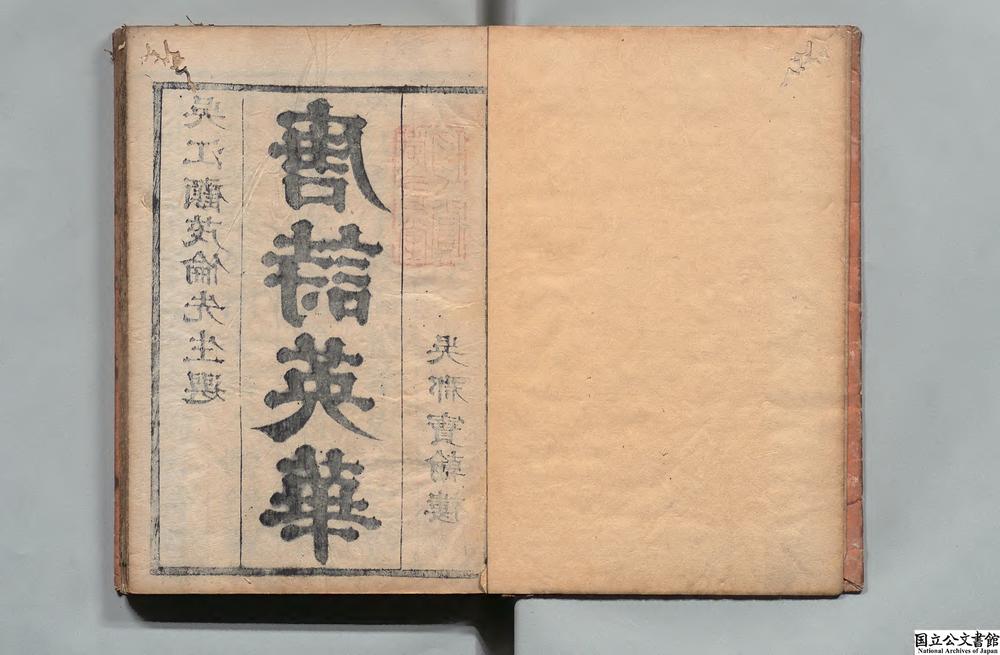 吳江顧茂倫先生選
唐詩英華
吳郡寶翰樓
国立公文書館
National Archives of Japan